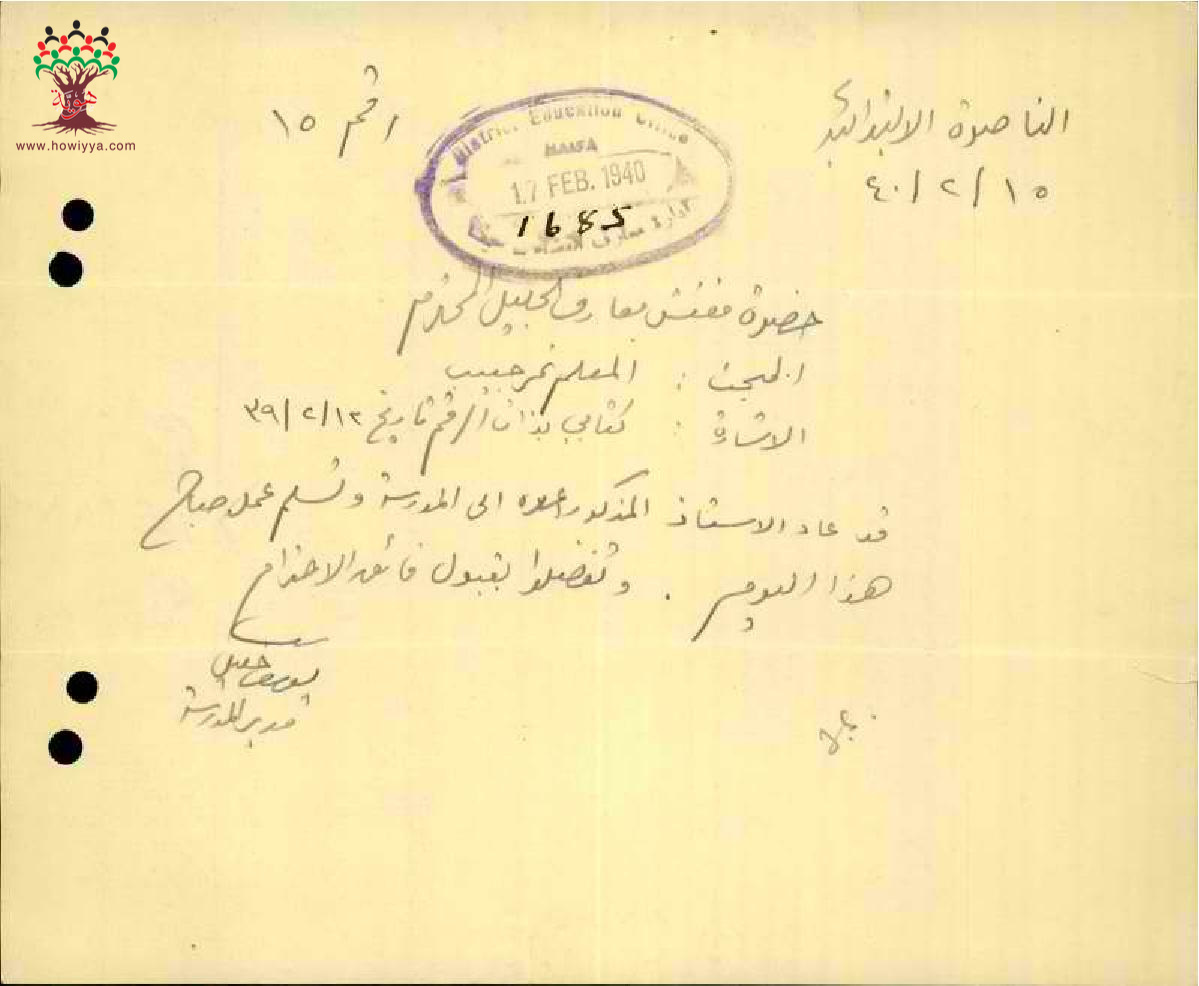 هوية
www.howiyya.com
الناصرة الابتدائية
١٥/٢/٤٠
رقم ١٥
District Education Office
HAIFA
17 FEB. 1940
1685
ادارة معارف لواء حيفا
حضرة مفتش معارف الجليل المحترم
المبحث : المعلم نمر حبيب
الاشارة : كتابي بذات الرقم تاريخ ١٢/٢/٣٩
قد عاد الاستاذ المذكور اعلاه الى المدرسة وتسلم عمله صباح
هذا اليوم . وتفضلوا بقبول فائق الاحترام
يوسف
مدير المدرسة